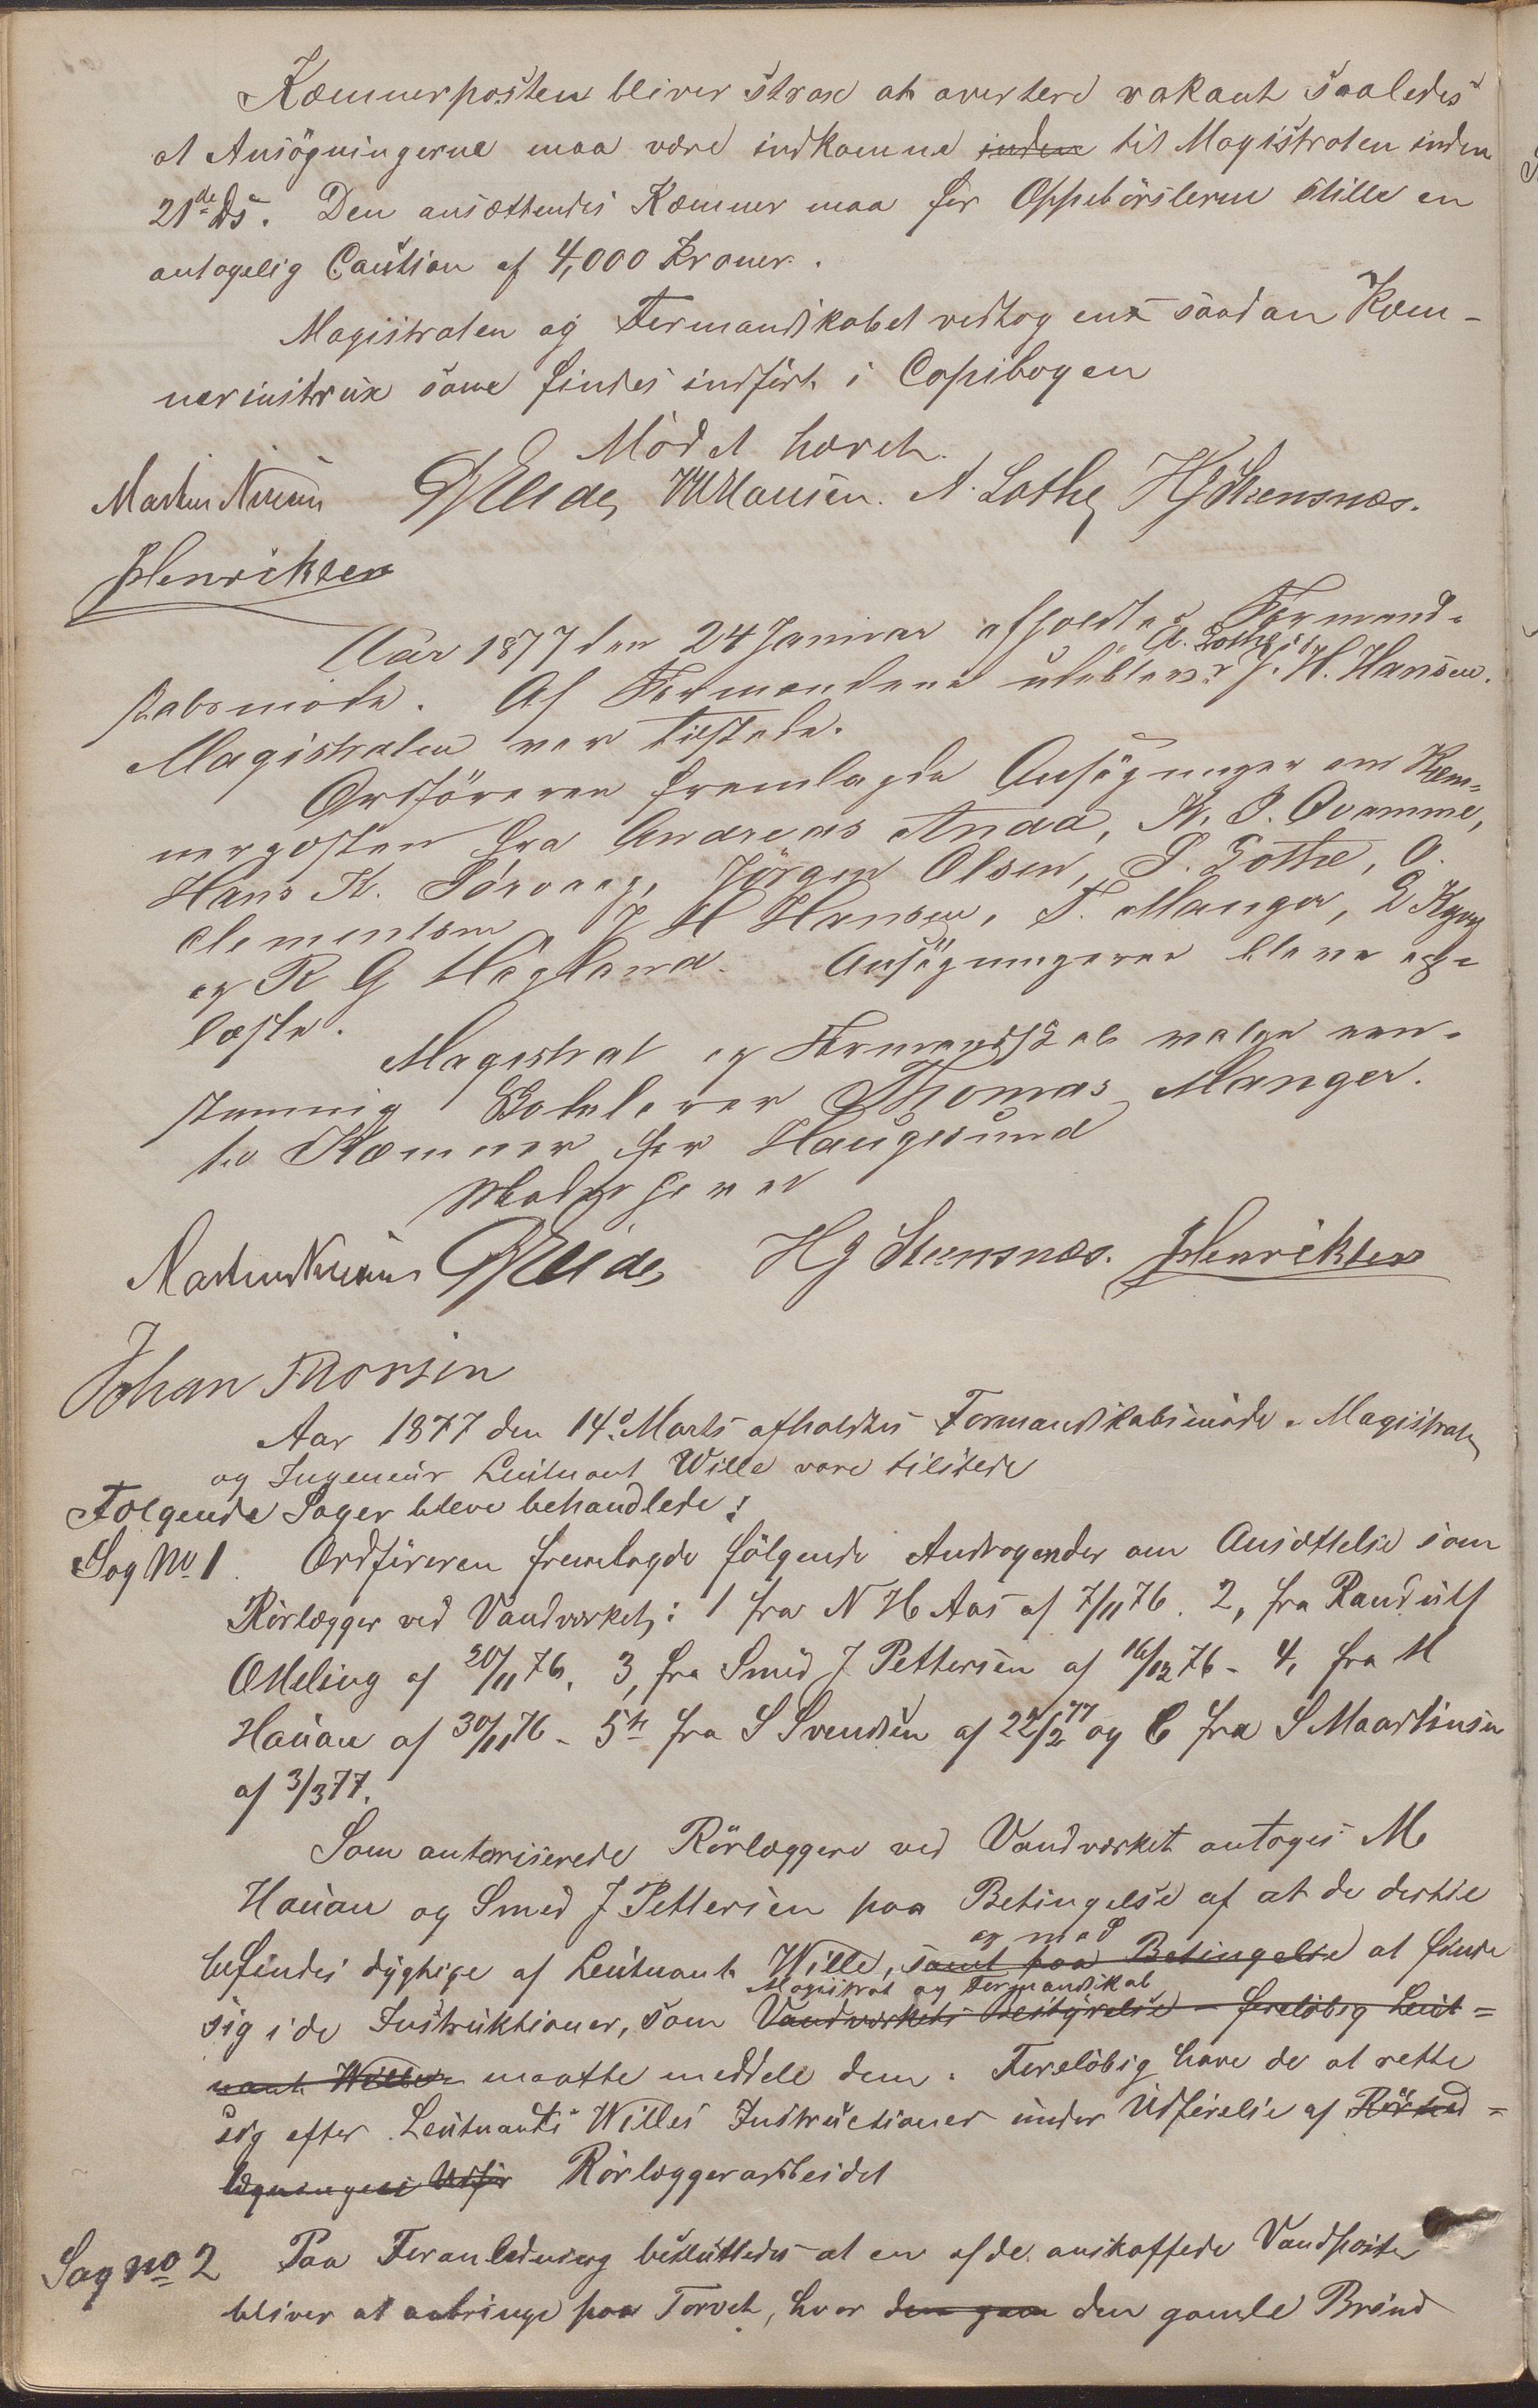 Kæmnerposten bliver strax at avertere vakant saaledes
at Ansögningerne maa være indkomne inden til Magistraten inden
21de ds. Den ansættendes Kæmner maa for Oppebörslerne stille en
antagelig Caution af 4,000 Kroner.
Magistraten og Formandskabet vedtog en saadan Kæm-
nerinstrux some findes indfört i Copibogen
Mödet hævet.
B Eide J H Hansen. A. Lothe H G Steensnæs.
J Henriksen
Aar 1877 den 24 Januar afholdtes Formand-
skabsmöde. Af Formændene udeblev A. Lothe J. H. Hansen.
Magistraten var tilstede.
Ordföreren fremlagde Ansögninger om Kæm-
nerposten fra Andreas Anda, K. J. Qvamme,
Hans K. Sörvaag, Jörgen Olsen, S. Lothe, O.
Clementsen J H Hansen, T. Manger, E Kyrø
og R G Hagland. Ansögningerne bleve op-
læste.
Magistrat og Formandskab valgte een-
stemmig Botelerer Thomas Manger.
til Kæmner for Haugesund
Mödet hævet
B Eide H G Steensnæs. J Henriksen
Johan Thorsen
Aar 1877 den 14d Marts afholdtes Formandskabsmöde. Magistraten
og Ingeniör Leutnant Wille vare tilstede
Folgende Sager bleve behandlede:
Sag No 1. Ordföreren fremlagde fölgende Andragender om Ansættelse som
Rörlægger ved Vandværket: 1 fra N H Aas af 7/11 76. 2, fra Randulf
O Meling af 20/11 76. 3, fra Smed J Pettersen af 16/12 76 - 4, fra M
Hauan af 30/11 76 - 5te fra S Svendsen af 22/2 77 og 6 fra S Maartinsen
af 3/3 77.
Som autoriserede Rörlæggere ved Vandværket antages M
Hauan og Smed J Pettersen paa Betingelse af at de dertil
befindes dygtige af Leutnant Wille, samt paa Betingelse og mod at finde
sig i de Instruktioner, som Vandværkets Bestyrelse - foreløbig Leut= Magistrat og Formandskab
nant Wille maatte meddele dem. Foreløbig have de at rette
sig efter Leutnants Willes Instructioner under Udförelse af Rörned=
lægningens Udför Rörlæggerarbeidet
Sag no 2 Paa Foranledning besluttedes at en af de anskaffede Vandposter
bliver at anbringe paa Torvet, hvor den gam den gamle Brönd